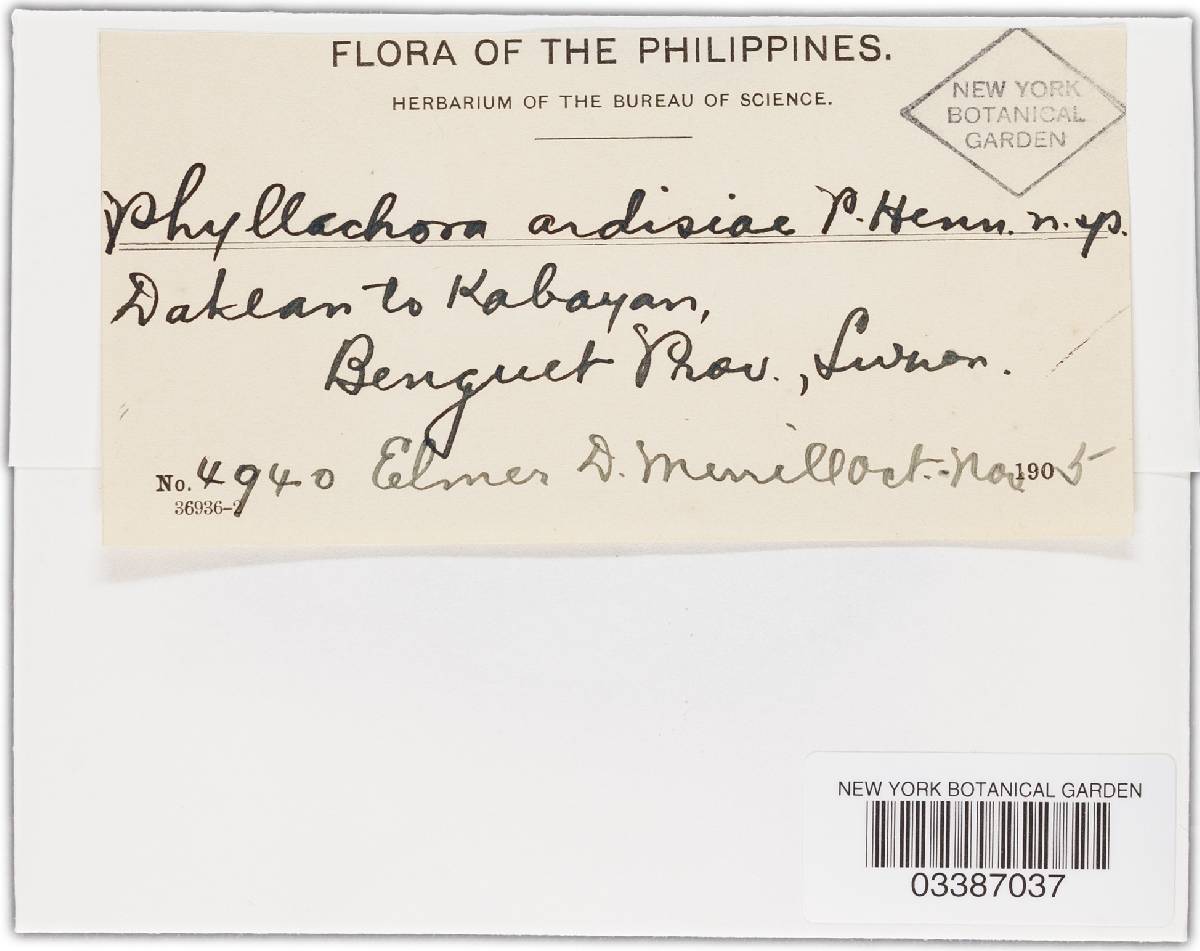 FLORA OF THE PHILIPPINES.
HERBARIUM OF THE BUREAU OF SCIENCE.
NEW YORK
BOTANICAL
GARDEN
Phyllachora ardisiae P. Henn. n. sp.
Daklan to Kabayan,
Benguet Prov., Luzon.
No. 4940 Elmer D. Merrill Oct.-Nov 1905
36936-2
NEW YORK BOTANICAL GARDEN
03387037